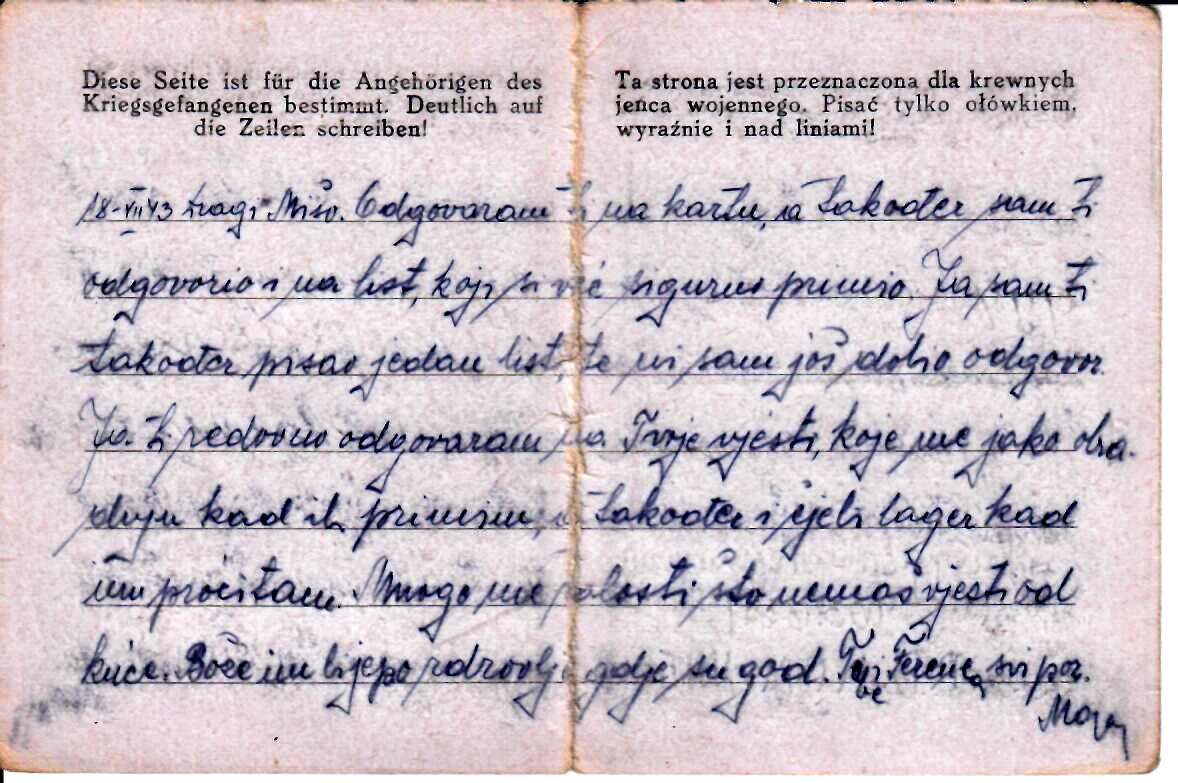 Diese Seite ist für die Angehörigen des
Kriegsgefangenen bestimmt. Deutlich auf
die Zeilen schreiben!
Ta strona jest przeznaczona dla krewnych
jeńca wojennego. Pisać tylko ołówkiem,
wyraźnie i nad liniami!
18-VII 43 Dragi Mišo. Odgovaram Ti na kartu, a također sam Ti
odgovorio i na list, koji si već sigurno primio. Ja sam Ti
također pisao jedan list, te ni sam još dobio odgovor.
Ja Ti redovno odgovaram na Tvoje vjesti, koje me jako obra-
duju kad ih primim, a također i cjeli lager kad
im pročitam. Mnogo me žalosti što nemaš vjesti od
kuće. Bože im lijepo zdravlje gdje su god. Ferenca svi poz.